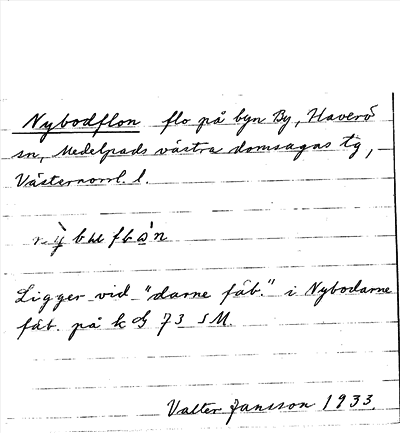 Nybodflon flo på byn By, Haverö
sn, Medelpads västra domsagas tg,
Västernorrl. l.
Ligger vid "darne fäb." i Nybodarne
fäb. på k G 73 SM.
Valter Jansson 1933.